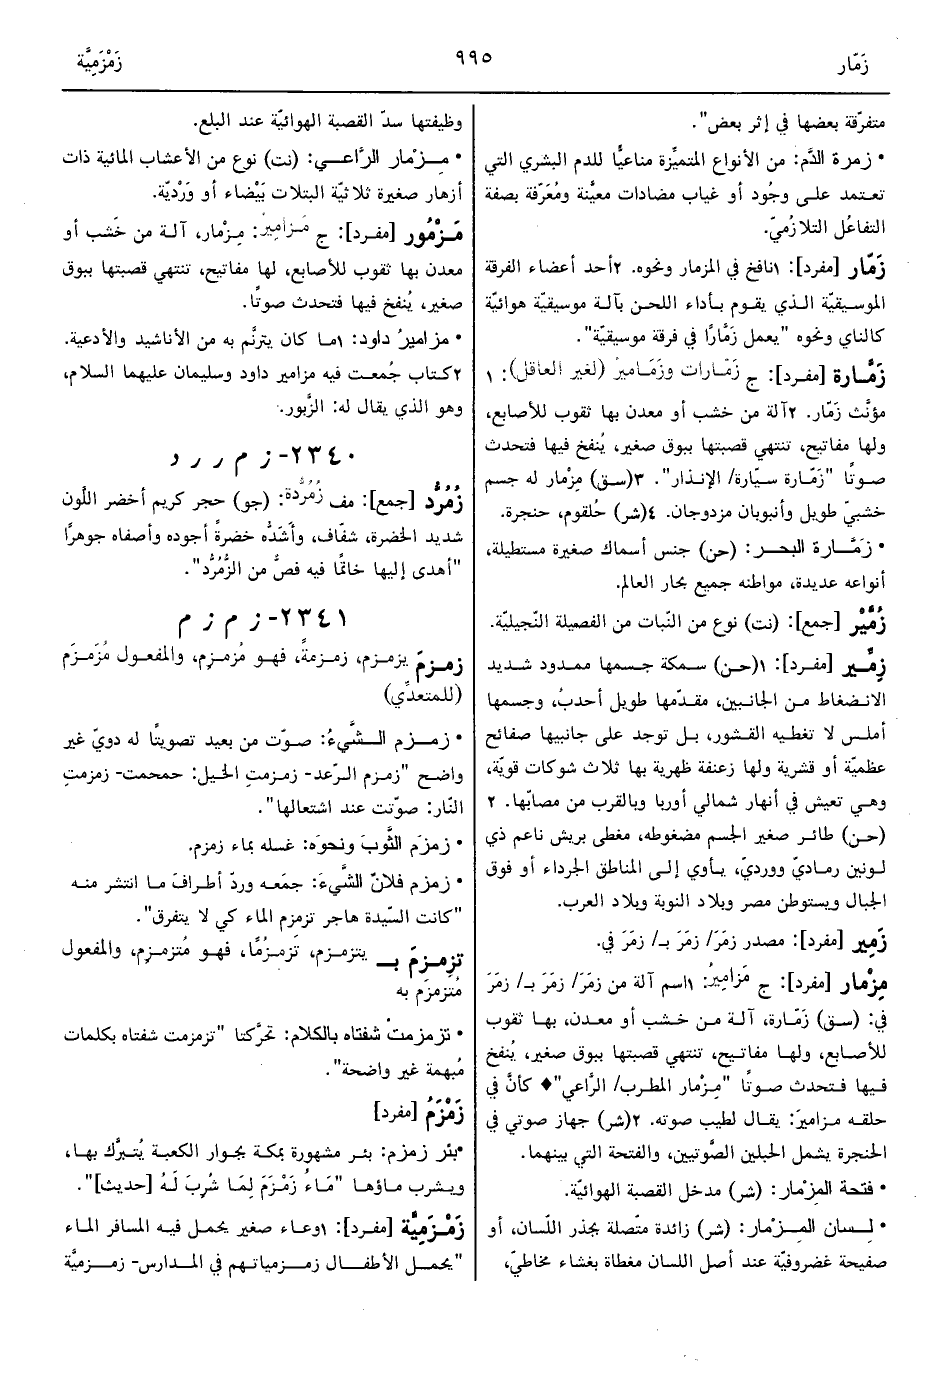 زَمّار
٩٩٥
زَمْزَمِيَّة
متفرّقة بعضها في إثر بعض".
• زمرة الدَّم: من الأنواع المتميِّزة مناعيًّا للدم البشري التي
تعتمد على وجُود أو غياب مضادات معيَّنة ومُعَرَّفة بصفة
التفاعُل التلازُميّ.
زَمّار [مفرد]: ١نافخ في المزمار ونحوه. ٢أحد أعضاء الفرقة
الموسيقيّة الذي يقوم بأداء اللحن بآلة موسيقيّة هوائيّة
كالناي ونحوه "يعمل زَمَّارًا في فرقة موسيقيّة".
زَمَّارة [مفرد]: ج زَمّارات وزَمَامير (لغير العاقل): ١
مؤنَّث زَمّار. ٢آلة من خشب أو معدن بها ثقوب للأصابع،
ولها مفاتيح، تنتهي قصبتها ببوق صغير، يُنفخ فيها فتحدث
صوتًا "زَمّارة سيّارة/ الإنذار". ٣(سق) مِزْمار له جسم
خشبيّ طويل وأنبوبان مزدوجان. ٤(شر) حُلقوم، حنجرة.
• زَمَّارة البحر: (حن) جنس أسماك صغيرة مستطيلة،
أنواعه عديدة، مواطنه جميع بحار العالم.
زُمَّيْر [جمع]: (نت) نوع من النّبات من الفصيلة النّجيليّة.
زِمِّير [مفرد]: ١(حن) سمكة جسمها ممدود شديد
الانضغاط من الجانبين، مقدّمها طويل أحدبُ، وجسمها
أملس لا تغطيه القشور، بل توجد على جانبيها صفائح
عظميّة أو قشرية ولها زعنفة ظهرية بها ثلاث شوكات قويّة،
وهي تعيش في أنهار شمالي أوربا وبالقرب من مصابّها. ٢
(حن) طائر صغير الجسم مضغوطه، مغطى بريش ناعم ذي
لونين رماديّ وورديّ، يأوي إلى المناطق الجرداء أو فوق
الجبال ويستوطن مصر وبلاد النوبة وبلاد العرب.
زَمِير [مفرد]: مصدر زمَرَ/ زمَرَ بـ/ زمَرَ في.
مِزْمار [مفرد]: ج مَزاميرُ: ١اسم آلة من زمَرَ/ زمَرَ بـ/ زمَرَ
في: (سق) زَمّارة، آلة من خشب أو معدن، بها ثقوب
للأصابع، ولها مفاتيح، تنتهي قصبتها ببوق صغير، يُنفخ
فيها فتحدث صوتًا "مِزْمار المطرب/ الرَّاعي"♦ كأنَّ في
حلقه مزاميرَ: يقال لطيب صوته. ٢(شر) جهاز صوتي في
الحنجرة يشمل الحبلين الصَّوتيين، والفتحة التي بينهما.
• فتحة المِزْمار: (شر) مدخل القصبة الهوائيّة.
• لسان المِزْمار: (شر) زائدة متّصلة بجذر اللّسان، أو
صفيحة غضروفيّة عند أصل اللسان مغطاة بغشاء مخاطيّ،
وظيفتها سدّ القصبة الهوائيّة عند البلع.
• مِزْمار الرَّاعي: (نت) نوع من الأعشاب المائية ذات
أزهار صغيرة ثلاثيّة البتلات بَيْضاء أو وَرْديّة.
مَزْمُور [مفرد]: ج مَزاميرُ: مِزْمار، آلة من خَشب أو
معدن بها ثقوب للأصابع، لها مفاتيح، تنتهي قصبتها ببوق
صغير، يُنفخ فيها فتحدث صوتًا.
• مزاميرُ داود: ١ما كان يترنَّم به من الأناشيد والأدعية.
٢كتاب جُمعت فيه مزامير داود وسليمان عليهما السلام،
وهو الذي يقال له: الزَّبور.
٢٣٤٠- ز م ر ر د
زُمُرُّد [جمع]: مف زُمُرُّدة: (جو) حجر كريم أخضر اللَّون
شديد الخضرة، شفّاف، وأشدُّه خضرةً أجوده وأصفاه جوهرًا
"أهدى إليها خاتمًا فيه فصٌّ من الزُّمُرُّد".
٢٣٤١- ز م ز م
زمزمَ يزمزم، زمزمةً، فهو مُزمزِم، والمفعول مُزَمزَم
(للمتعدِّي)
• زمزم الشَّيءُ: صوّت من بعيد تصويتًا له دويّ غير
واضح "زمزم الرّعد- زمزمتِ الخيل: حمحمت- زمزمتِ
النّار: صوّتت عند اشتعالها".
• زمزمَ الثّوبَ ونحوَه: غسله بماء زمزم.
• زمزم فلانٌ الشَّيءَ: جمَعه وردّ أطرافَ ما انتشر منه
"كانت السّيدة هاجر تزمزم الماء كي لا يتفرق".
تزمزمَ بـ يتزمزم، تزمزُمًا، فهو مُتزمزِم، والمفعول
مُتزمزَم به
• تزمزمتْ شفتاه بالكلام: تحرَّكتا "تزمزمت شفتاه بكلمات
مُبهمة غير واضحة".
زَمْزَمُ [مفرد]
•بئر زمزم: بئر مشهورة بمكة بجوار الكعبة يُتبرَّك بها،
ويشرب ماؤها "مَاءُ زَمْزَمَ لِمَا شُرِبَ لَهُ [حديث]".
زَمْزَمِيَّة [مفرد]: ١وعاء صغير يحمل فيه المسافر الماء
"يحمل الأطفال زمزمياتهم في المدارس- زمزميَّة